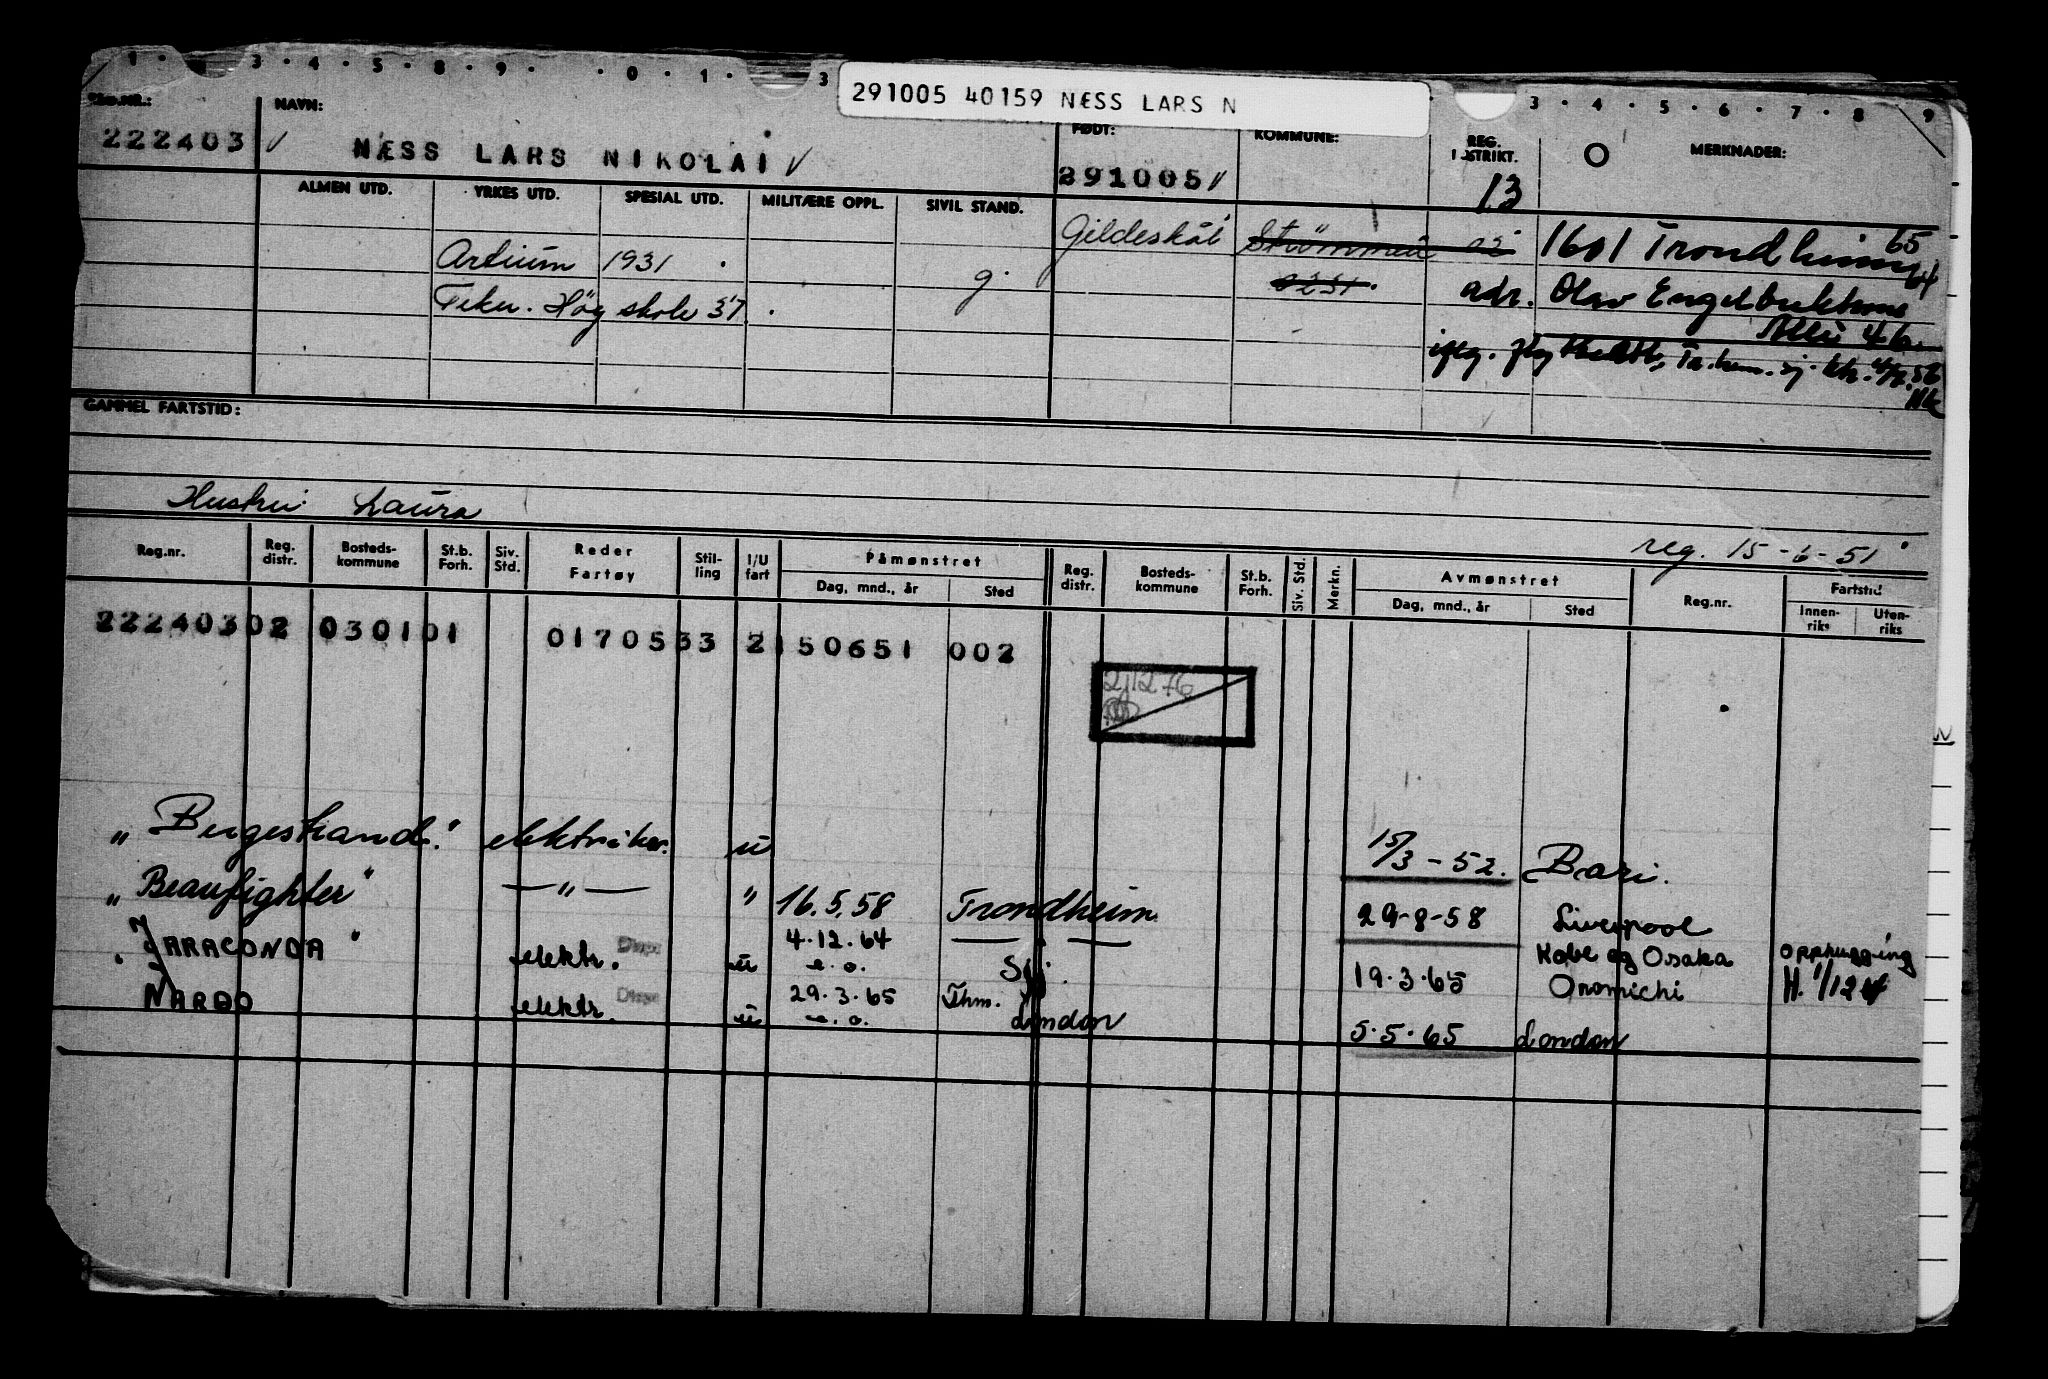 1 · 3 · 4 · 5 · 8 · 9 · · 0 · 1 · 3 3 · 4 · 5 · 6 · 7 · 8 9
291005 40159 NÆSS LARS N
NAVN: FØDT: KOMMUNE: REG. DISTRIKT. MERKNADER:
222403 NÆSS LARS NIKOLAI 291005 13
ALMEN UTD. YRKES UTD. SPESIAL UTD. MILITÆRE OPPL. SIVIL STAND.
Gildeskål Strömmen 1601 Trondheim 65
Artium 1931 g. 0231. adr. Olav Engelbrektsons
Tekn. Høgskole 37. Allé 4 b.
iflg.
GAMMEL FARTSTID:
Hustru: Laura
reg. 15-6-51
Reg.nr. Reg. distr. Bosteds-kommune St.b. Forh. Siv. Std. Reder Fartøy Stil-ling I/U fart Påmønstret Dag, mnd., år Sted Reg. distr. Bosteds-kommune St.b. Forh. Siv. Std. Merkn. Avmønstret Dag, mnd., år Sted Reg.nr. Fartstid Innen-riks Uten-riks
22240302 030101 0170533 2150651 002
21276
"Bergestrand." elektriker. u 15/3-52. Bari.
"Beaufighter" —"— " 16.5.58 Trondheim 29-8-58 Liverpool
"JARACONDA" elektr. u 4.12.64 —"— Kobe og Osaka opphugging
e.o. 19.3.65 Onomichi
NARDO elektr. u 29.3.65 Thm.
e.o. London 5.5.65 London